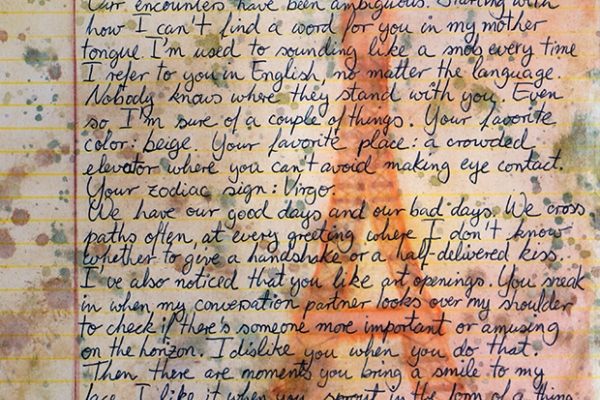 Our encounters have been ambiguous. Starting with
how I can't find a word for you in my mother
tongue. I'm used to sounding like a snob every time
I refer to you in English, no matter the language.
Nobody knows where they stand with you. Even
so I'm sure of a couple of things. Your favorite
color: beige. Your favorite place: a crowded
elevator where you can't avoid making eye contact.
Your zodiac sign: Virgo.
We have our good days and our bad days. We cross
paths often, at every greeting where I don't know
whether to give a handshake or a half-delivered kiss.
I've also noticed that you like art openings. You sneak
in when my conversation partner looks over my shoulder
to check if there's someone more important or amusing
on the horizon. I dislike you when you do that.
Then there are moments you bring a smile to my
face. I like it when you sprout in the form of a thing